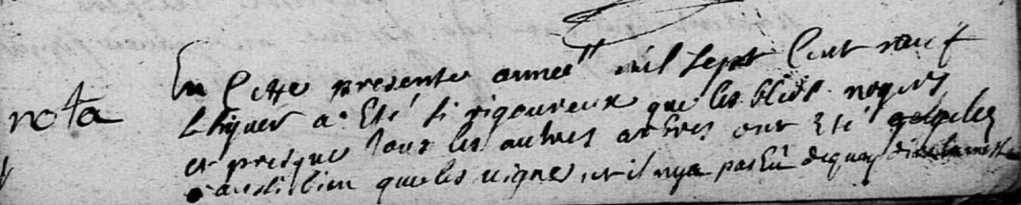 nota
En Cette presente année mil sept Cent neuf
Lhiuer a Eté si rigoureux que les bleds noyers
et presque tous les autres arbres ont Eté gelés
aussi bien que les uignes, et il nya pas Eu dequoy